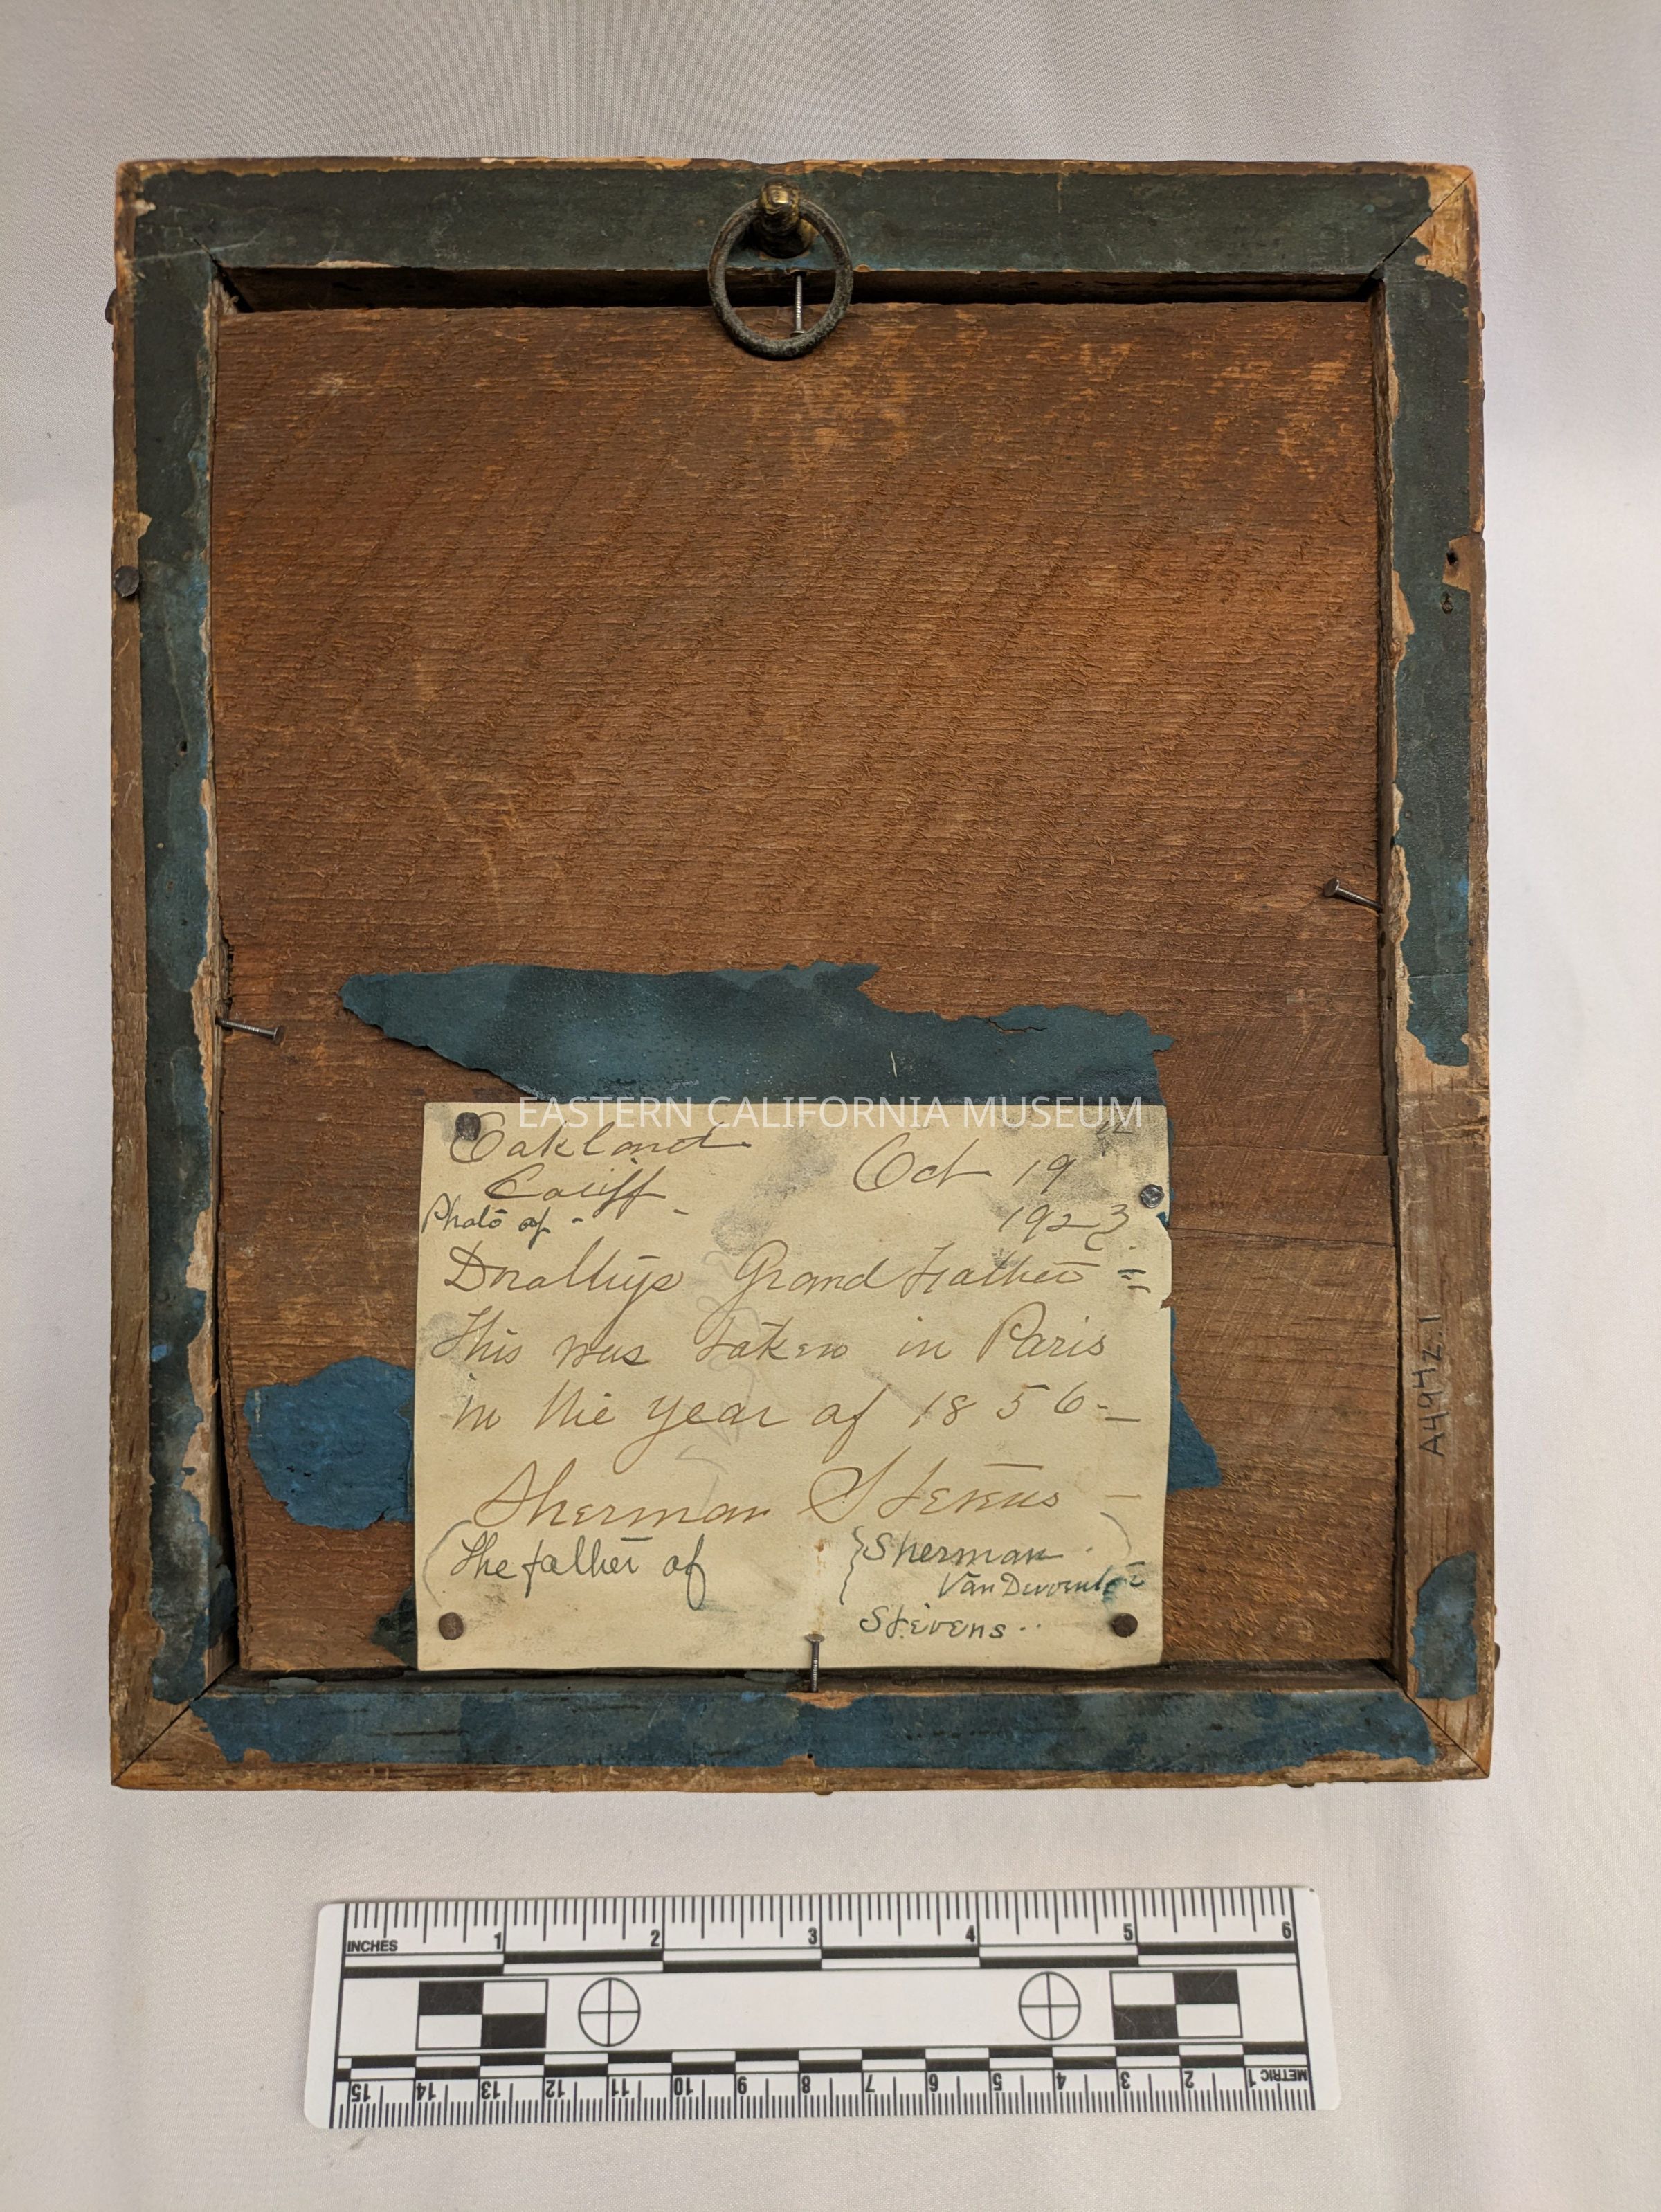 EASTERN CALIFORNIA MUSEUM
Oakland
Califf
Oct 19
1923
Photo of
Dorathys Grand Father
This was taken in Paris
in the year of 1856
Sherman Stevens
(The father of {Sherman
Stevens)
A442.1
INCHES 1 2 3 4 5 6
METRIC 1 2 3 4 5 6 7 8 9 10 11 12 13 14 15